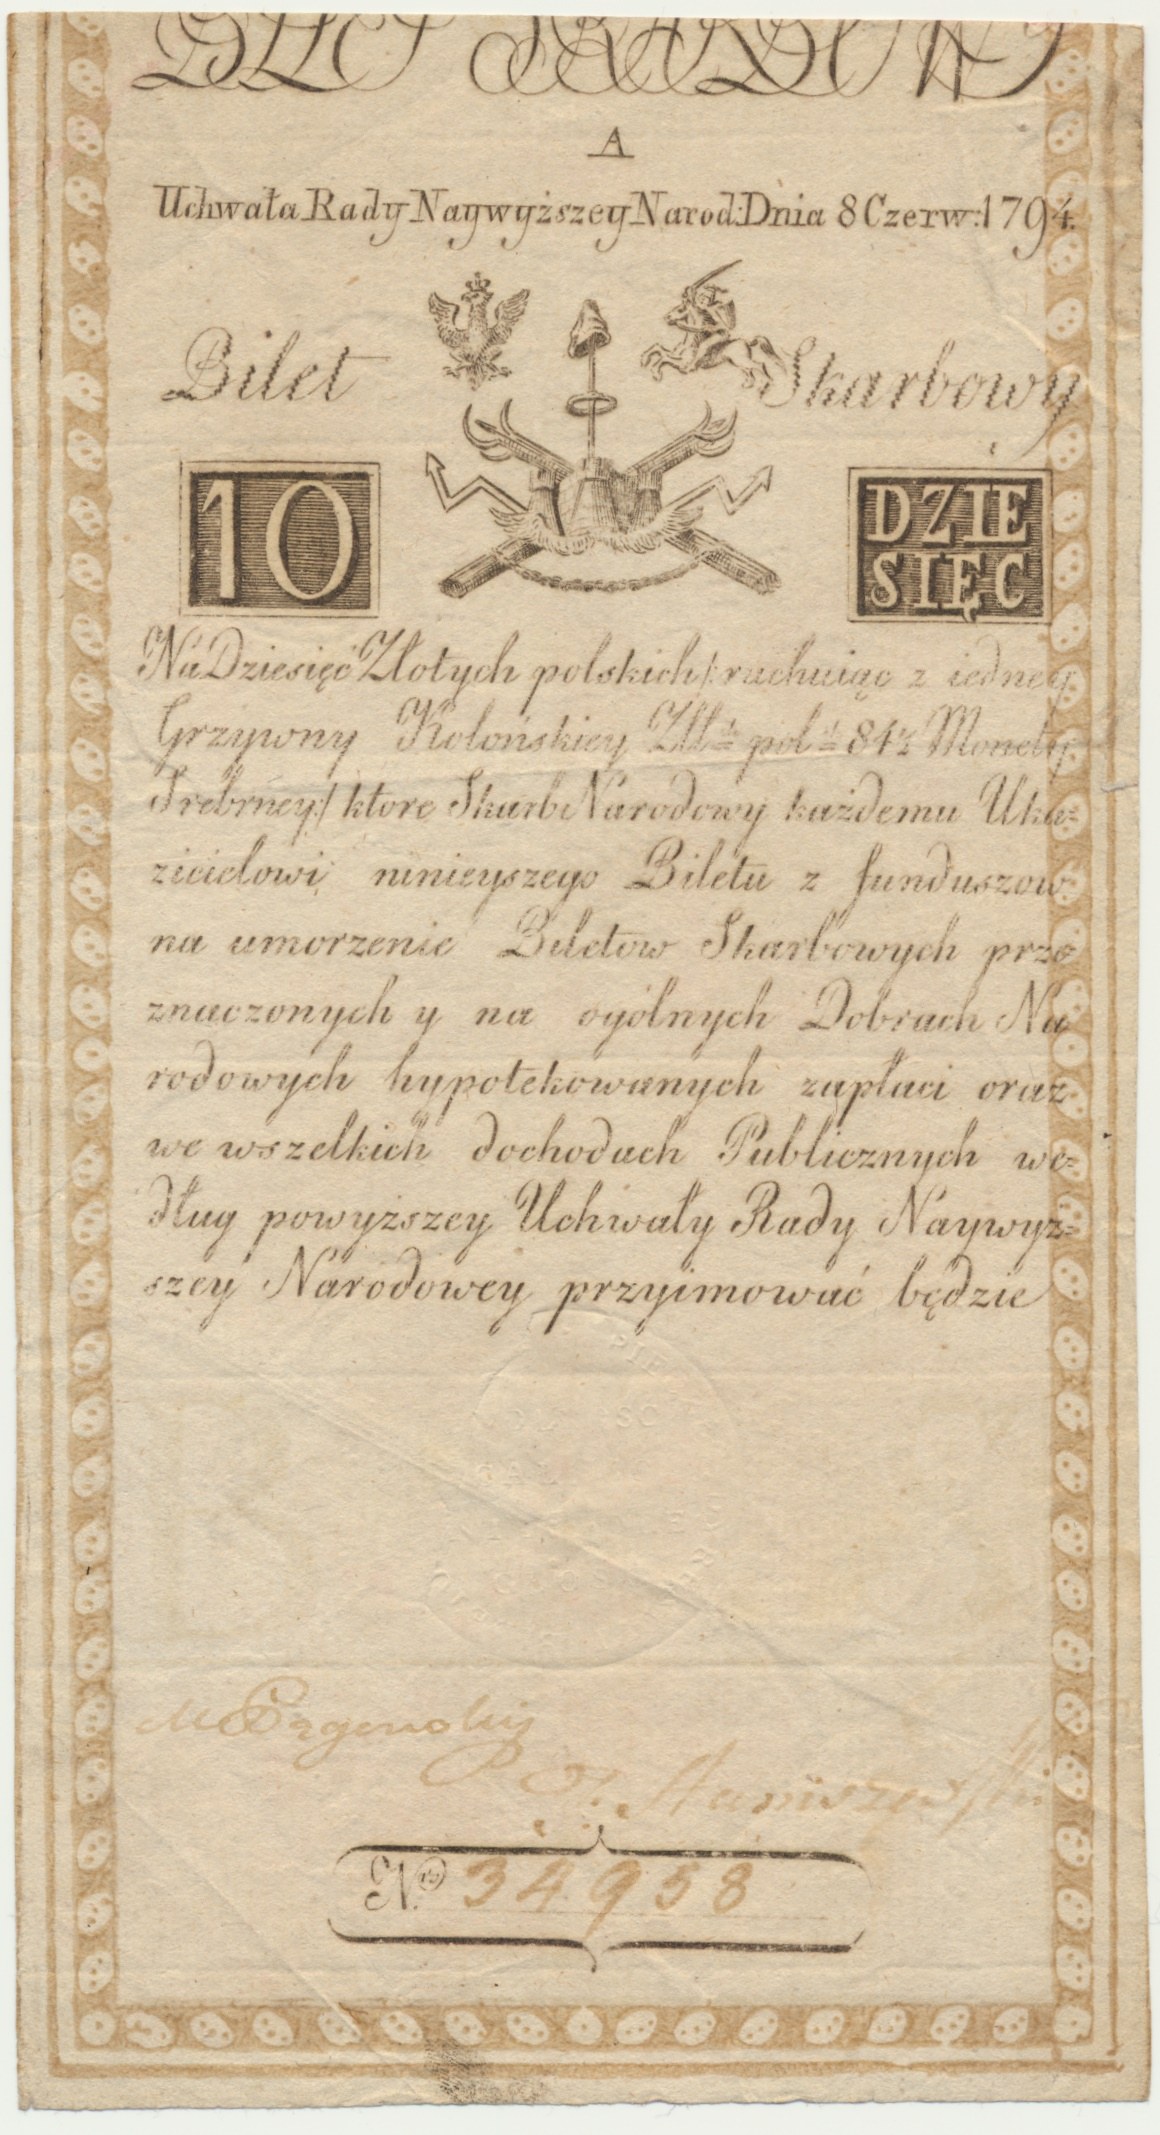 A
Uchwała Rady Naywyższey Narod: Dnia 8 Czerw: 1794.
Bilet Skarbowy
10
DZIE
SIĘC
Na Dziesięć Złotych polskich /: rachuiąc z iedney
Grzywny Kolońskiey Zll: pol: 84½ Monety
Srebrney :/ ktore Skarb Narodowy każdemu Uka=
zicielowi ninieyszego Biletu z funduszow
na umorzenie Biletow Skarbowych prze
znaczonych y na ogólnych Dobrach Na
rodowych hypotekowanych zapłaci oraz
we wszelkich dochodach Publicznych we=
dług powyższey Uchwały Rady Naywyż=
szey Narodowey przyimować będzie
Staniszewski
No 34958